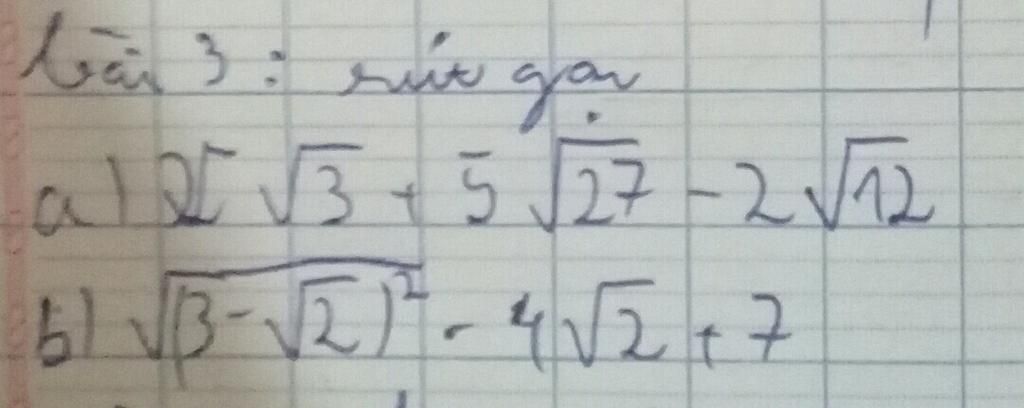 bài 3: rút gọn
a) √3 + 5√27 - 2√12
b) √(3-√2)² - 4√2 + 7